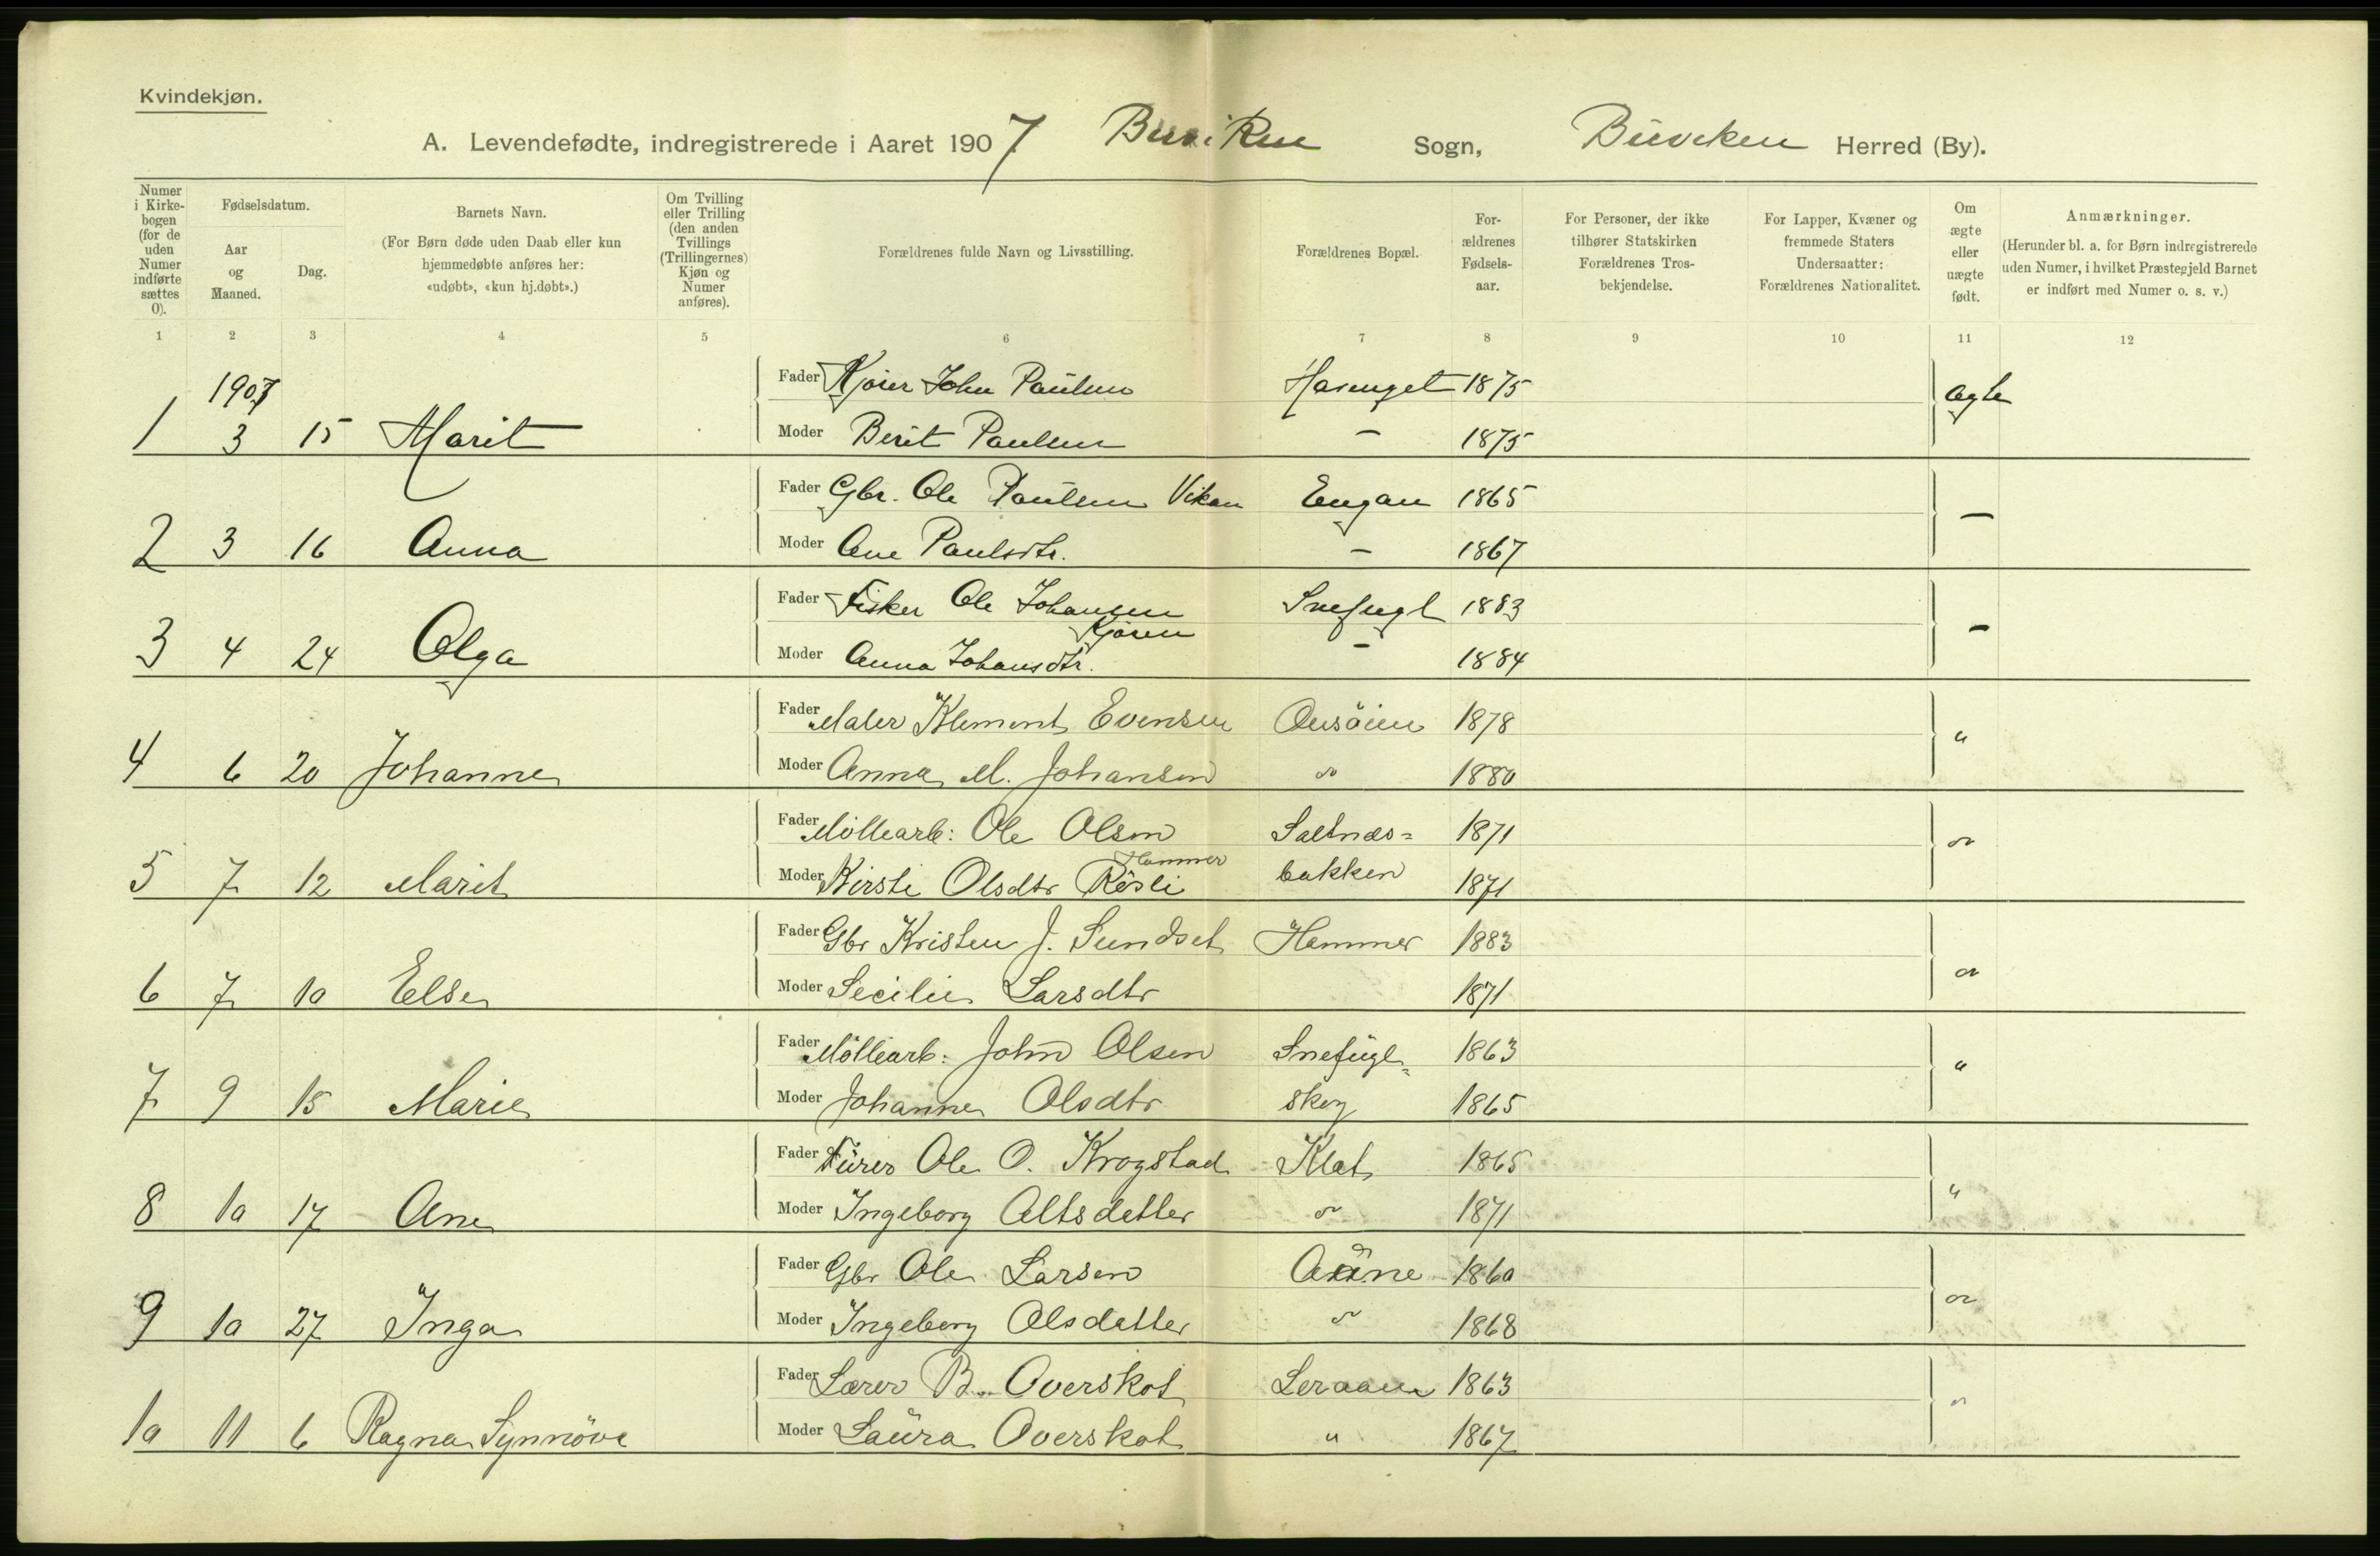 Kvindekjøn.
A. Levendefødte, indregistrerede i Aaret 1907 Buviken Sogn, Buviken Herred (By).
Numer i Kirkebogen (for de uden Numer indførte sættes 0).
Fødselsdatum.
Aar og Maaned.
Dag.
Barnets Navn.
(For Børn døde uden Daab eller kun hjemmedøbte anføres her: «udøbt», «kun hj.døbt».)
Om Tvilling eller Trilling (den anden Tvillings (Trillingernes) Kjøn og Numer anføres).
Forældrenes fulde Navn og Livsstilling.
Forældrenes Bopæl.
Forældrenes Fødselsaar.
For Personer, der ikke tilhører Statskirken Forældrenes Trosbekjendelse.
For Lapper, Kvæner og fremmede Staters Undersaatter: Forældrenes Nationalitet.
Om ægte eller uægte født.
Anmærkninger.
(Herunder bl. a. for Børn indregistrerede uden Numer, i hvilket Præstegjeld Barnet er indført med Numer o. s. v.)
1 2 3 4 5 6 7 8 9 10 11 12
1907
Fader John Paulsen 1875 ægte
1 3 15 Marit Moder Berit Paulsen - 1875
Fader Gbr. Ole Paulsen Vikan Engan 1865 -
2 3 16 Anna Moder Ane Paulsdtr. - 1867
Fader Fisker Ole Johansen Snefugl 1883 -
Kjøren
3 4 24 Olga Moder Anna Johansdtr. - 1884
Fader Maler Klement Evensen Onsöien 1878 "
4 6 20 Johanne Moder Anna M. Johansen " 1880
Fader Möllearb: Ole Olsen Saltnæs= 1871 "
Hammer
5 7 12 Marit Moder Kirsti Olsdtr Rösli bakken 1871
Fader Gbr Kristen J. Sundset Hammer 1883 "
6 7 10 Else Moder Secilie Larsdtr 1871
Fader Möllearb: John Olsen Snefugl= 1863 "
7 9 15 Marie Moder Johanne Olsdtr skog 1865
Fader Ole O. Krogstad Klet 1865 "
8 10 17 Ane Moder Ingeborg Altsdatter " 1871
Fader Gbr Ole Larsen Aune 1860 "
9 10 27 Inga Moder Ingeborg Olsdatter " 1868
Fader Lærer B. Overskot Leraaen 1863 "
10 11 6 Ragna Synnöve Moder Laura Overskot " 1867